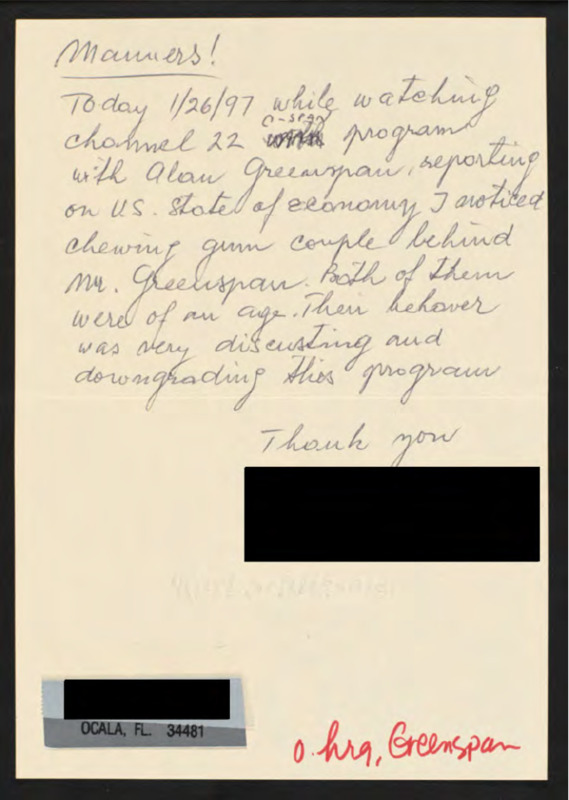 Manners!
Today 1/26/97 while watching
C-span
channel 22 program
with Alan Greenspan, reporting
on U.S. State of economy I noticed
chewing gum couple behind
Mr. Greenspan. Both of them
were of an age. Their behover
was very discusting and
downgrading this program
Thank you
OCALA, FL. 34481
o. hrg, Greenspan